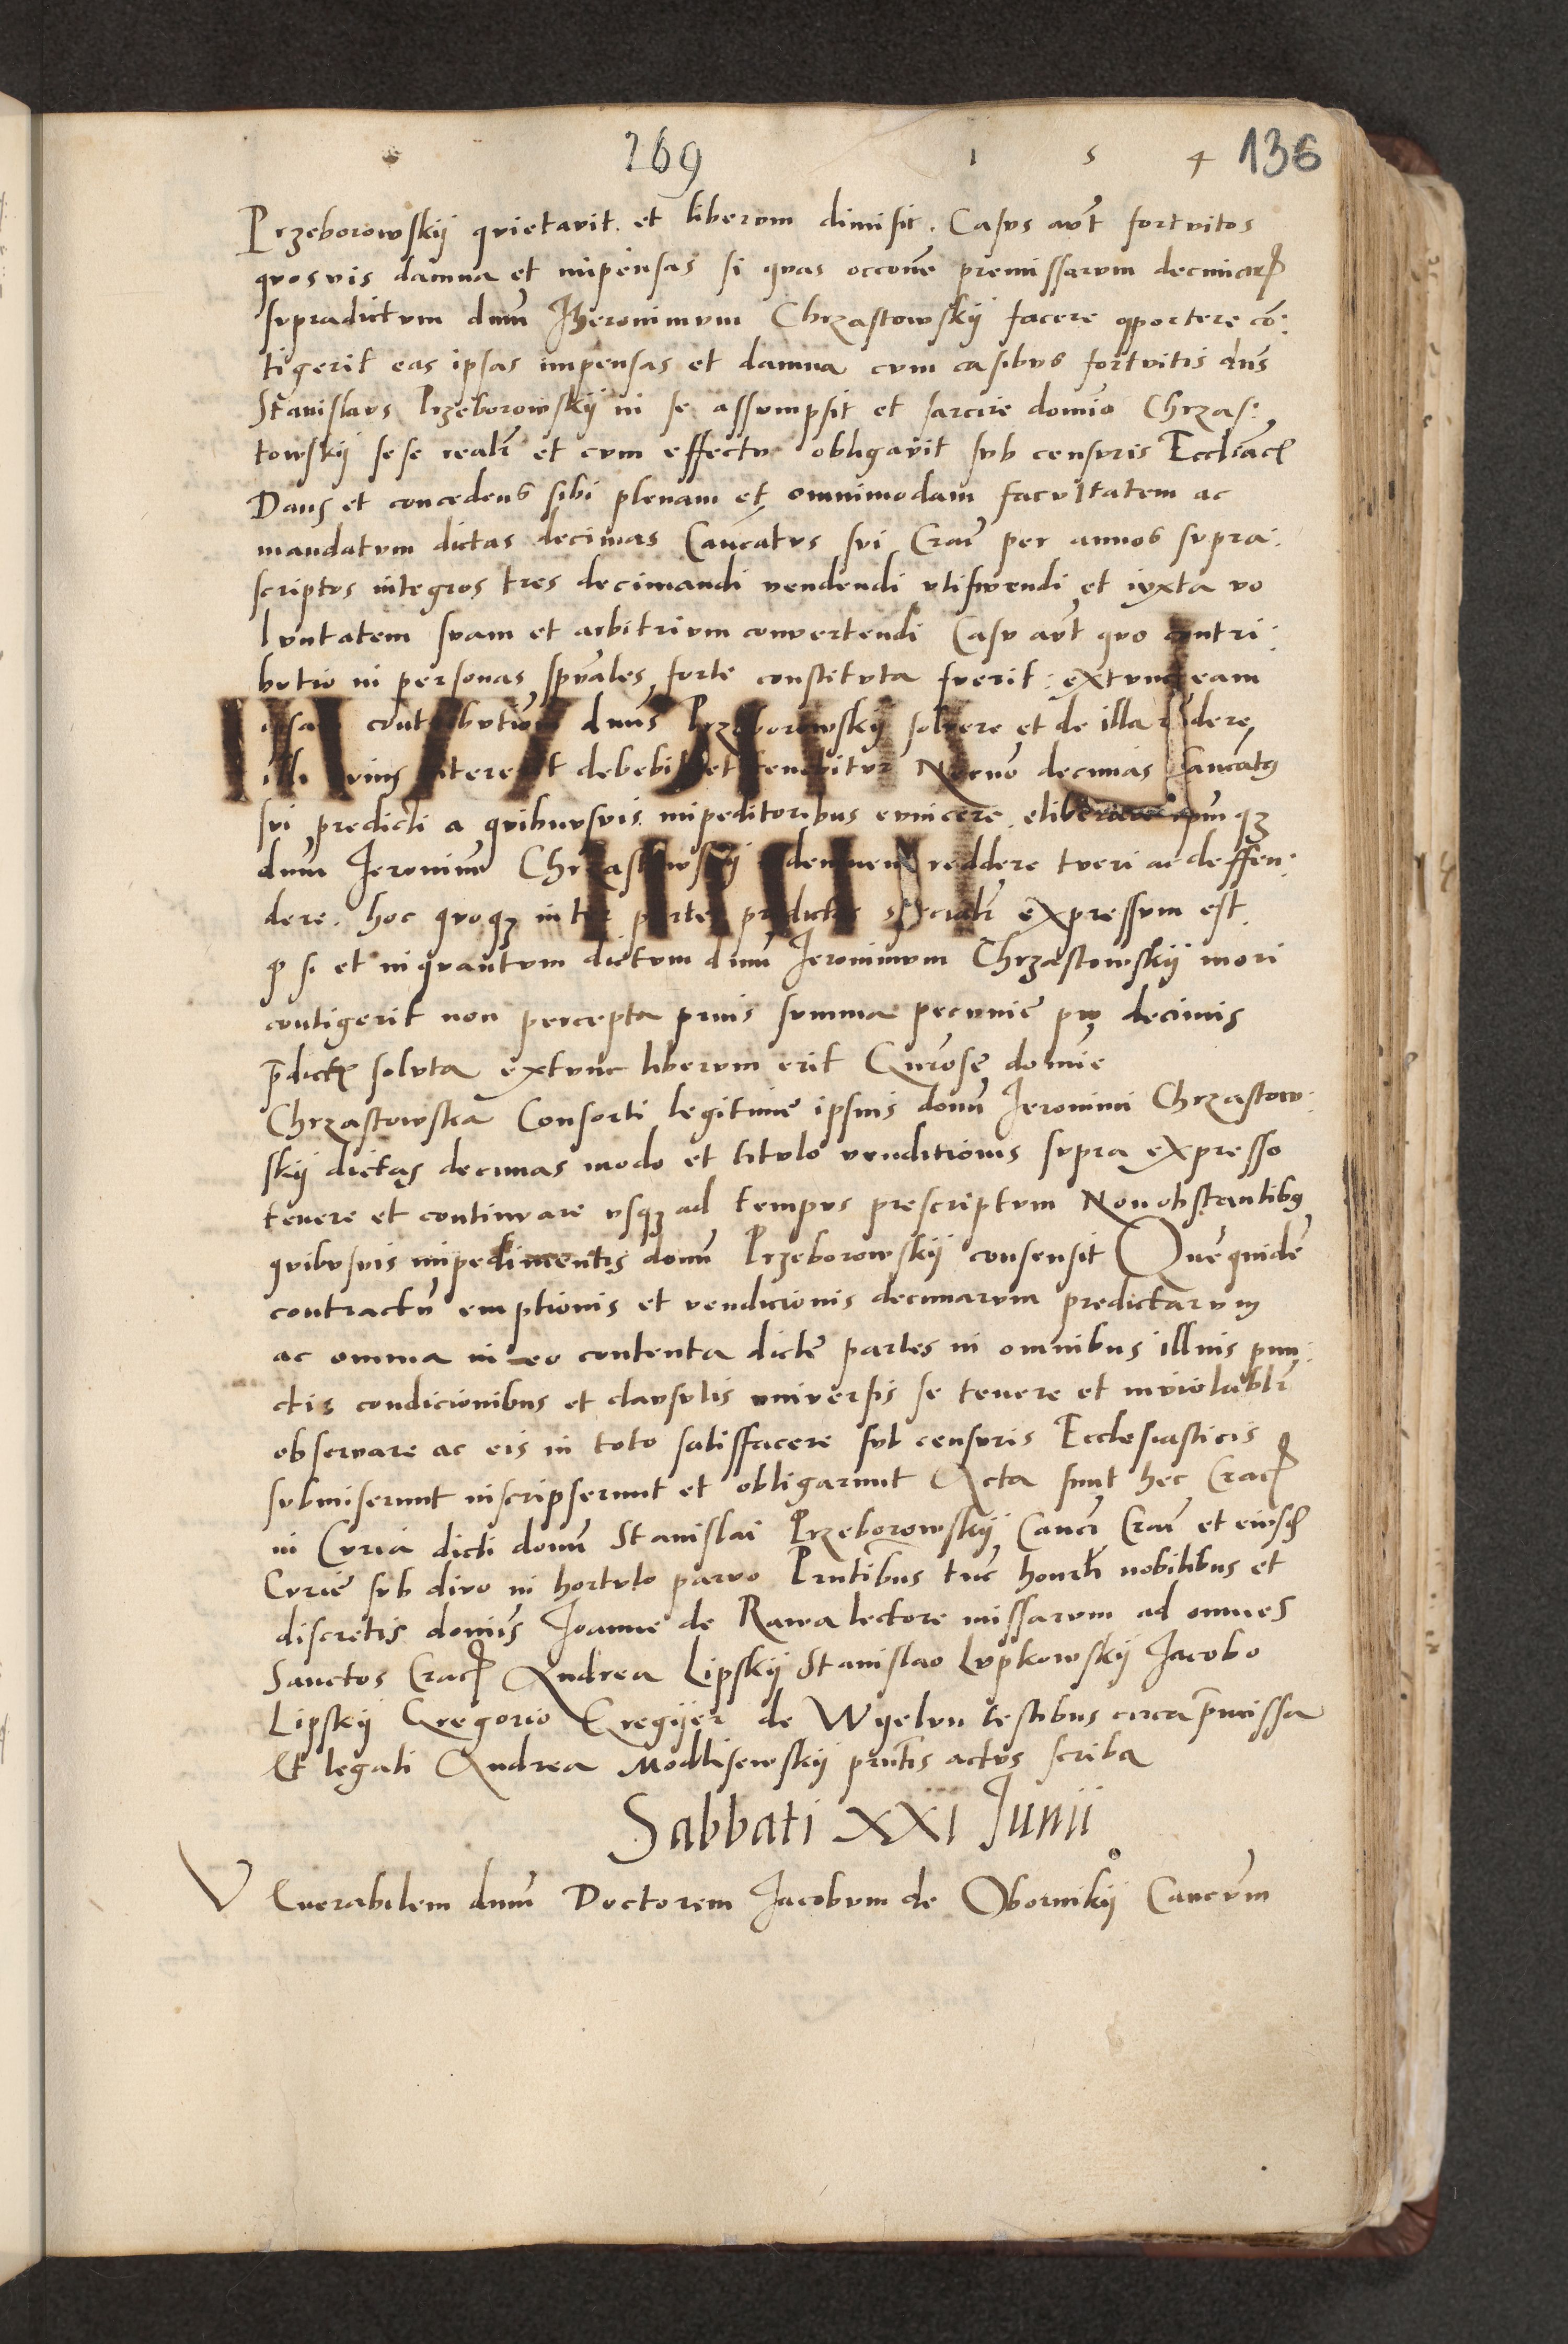 269 1 5 4 136
Przeborowskij qvietavit. et libervm dimisit. Casvs avt fortvitos
qvosvis damna et impensas si qvas occone premissarvm decimar
svpradictvm dnm Iheronimvm Chrzastowskij facere oportere co:
tigerit eas ipsas impensas et damna cvm casibvs fortvitis dns
Stanislavs Przeborowskij in se assvmpsit et sarcire domino Chrzas:
towskij sese realr et cvm effectv obligavit svb censvris Eccliac
Dans et concedens sibi plenam et omnimodam facvltatem ac
mandatvm dictas decimas Cancatvs svi Cran per annos svpra:
scriptos integros tres decimandi vendendi vtifrvendi et ivxta vo
lvntatem svam et arbitrivm convertendi Casv avt qvo contri:
bvtio in personas spvales forte constitvta fverit: extvnc eam
contribvtione dnvs Przeborowskij solvere et de illa rndere
illi debebit et tenebitvr Necno decimas Cancatvs
svi predicti a qvibvsvis impeditoribus evincere. eliberare
dnm Ieronimv Chrzastowskij reddere tveri ac deffen:
dere. hoc qvoqz inter partes predictas specialr expressvm est.
q si et inqvantvm dictvm dnm Ieronimvm Chrzastowskij mori
contigerit non percepta prius svmma pecvnie pro decimis
pdict solvta extvnc libervm erit Gnrose domine
Chrzastowska Consorti legitime ipsius domini Ieronimi Chrzastow:
skij dictas decimas modo et titvlo venditionis svpra expresso
tenere et continvare vsqz ad tempvs prescriptvm Non obstantibus
qvibvsvis impedimentis domini Przeborowskij consensit Quequidem
contractv emptionis et vendicionis decimarvm predictarvm
ac omnia in eo contenta dicte partes in omnibus illius pun:
ctis condicionibus et clavsvlis vniversis se tenere et inviolablr
observare ac eis in toto satisffacere svb censvris Ecclesiasticis
svbmiserunt inscripserunt et obligarunt Acta sunt hec Crac
in Cvria dicti domini Stanislai Przeborowskij Canci Cran et eiusd
Cvrie svb divo in hortvlo parvo Prntibus tvc honorb nobilibus et
discretis dominis Joanne de Rawa lectore missarvm ad omnes
Sanctos Crac Andrea Lipskij Stanislao Lvpkowskij Iacobo
Lipskij Gregorio Gregijer de Wyelvn testibus circa pmissa
Et legati Andrea Modlisewskij pntis actvs scriba
Sabbati XXI Junii
Venerabilem dnm Doctorem Jacobvm de Obornikij Cancvm